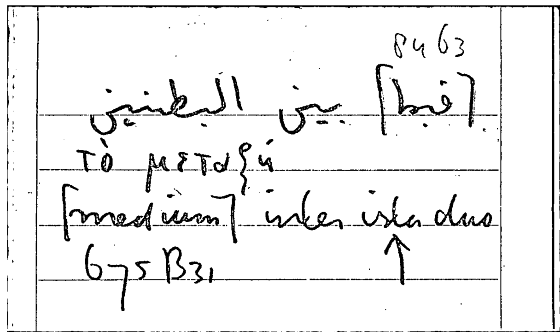 8463
[فيما] بين البطنين
τὸ μεταξύ
[medium] inter ista duo
↑
675B31